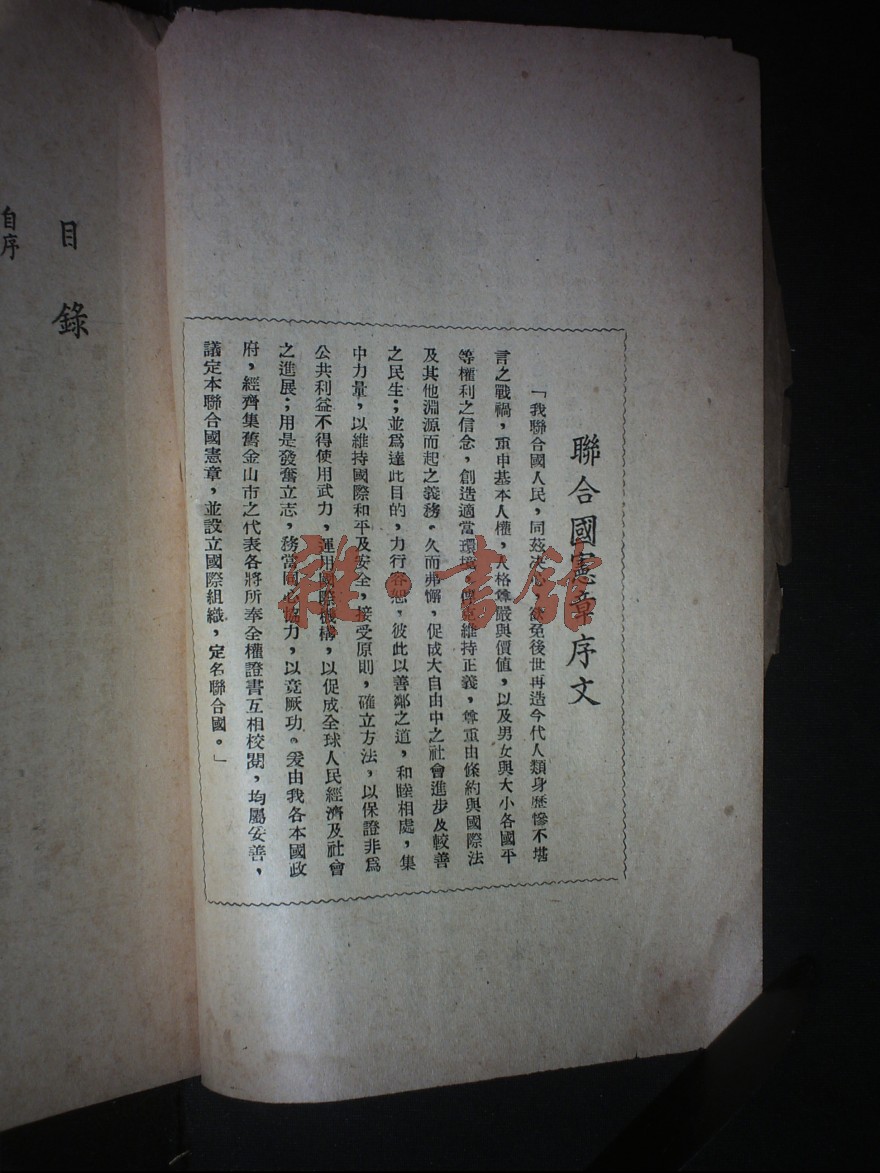 聯合國憲章序文
「我聯合國人民，同茲决心，欲免後世再造今代人類身歷慘不堪
言之戰禍，重申基本人權，人格尊嚴與價値，以及男女與大小各國平
等權利之信念，創造適當環境，俾克維持正義，尊重由條約與國際法
及其他淵源而起之義務。久而弗懈，促成大自由中之社會進步及較善
之民生；並爲達此目的，力行容恕，彼此以善鄰之道，和睦相處，集
中力量，以維持國際和平及安全，接受原則，確立方法，以保證非爲
公共利益不得使用武力，運用國際機構，以促成全球人民經濟及社會
之進展；用是發奮立志，務當同心協力，以竟厥功。爰由我各本國政
府，經齊集舊金山市之代表各將所奉全權證書互相校閱，均屬妥善，
議定本聯合國憲章，並設立國際組織，定名聯合國。」
目錄
自序
雜·書館